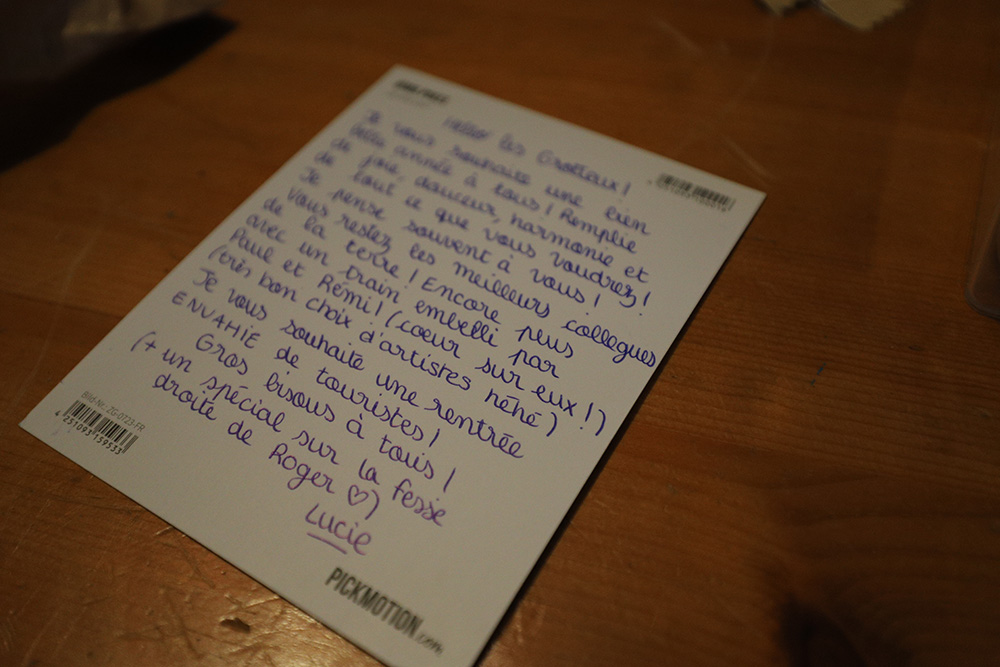 Hello les Grotteux!
Je vous souhaite une bien
belle année à tous! Remplie
de joie, douceur, harmonie et
de tout ce que vous voudrez!
Je pense souvent à vous!
Vous restez les meilleurs collègues
de la terre! Encore plus
avec un train embelli par
Paul et Rémi! (coeur sur eux!)
(très bon choix d'artistes héhé)
Je vous souhaite une rentrée
ENVAHIE de touristes!
Gros bisous à tous!
(+ un spécial sur la fesse
droite de Roger ♡)
Lucie
Bild-Nr. ZG-0723-FR
4 251093 159533
PICKMOTION.com